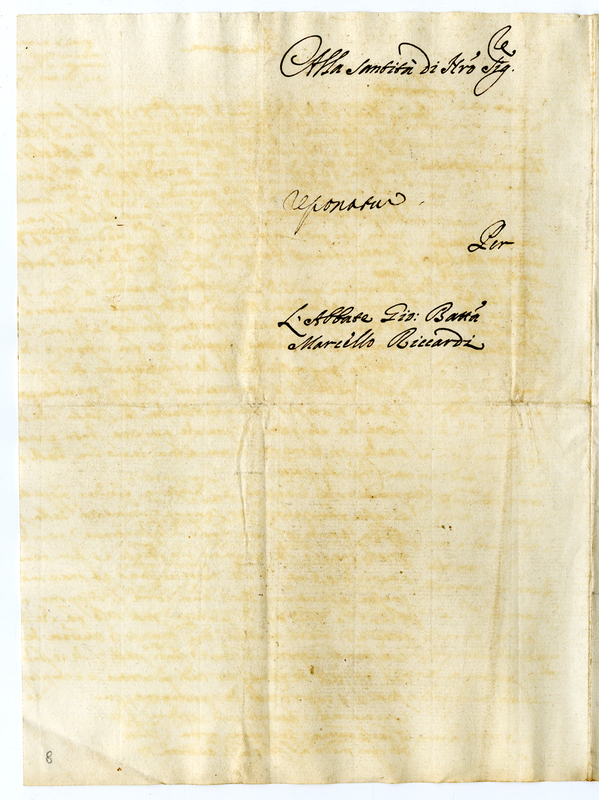 Alla Santità di Nrõ Sig.re
reponatur.
Per
L'Abbate Gio: Battã
Marcello Riccardi
8